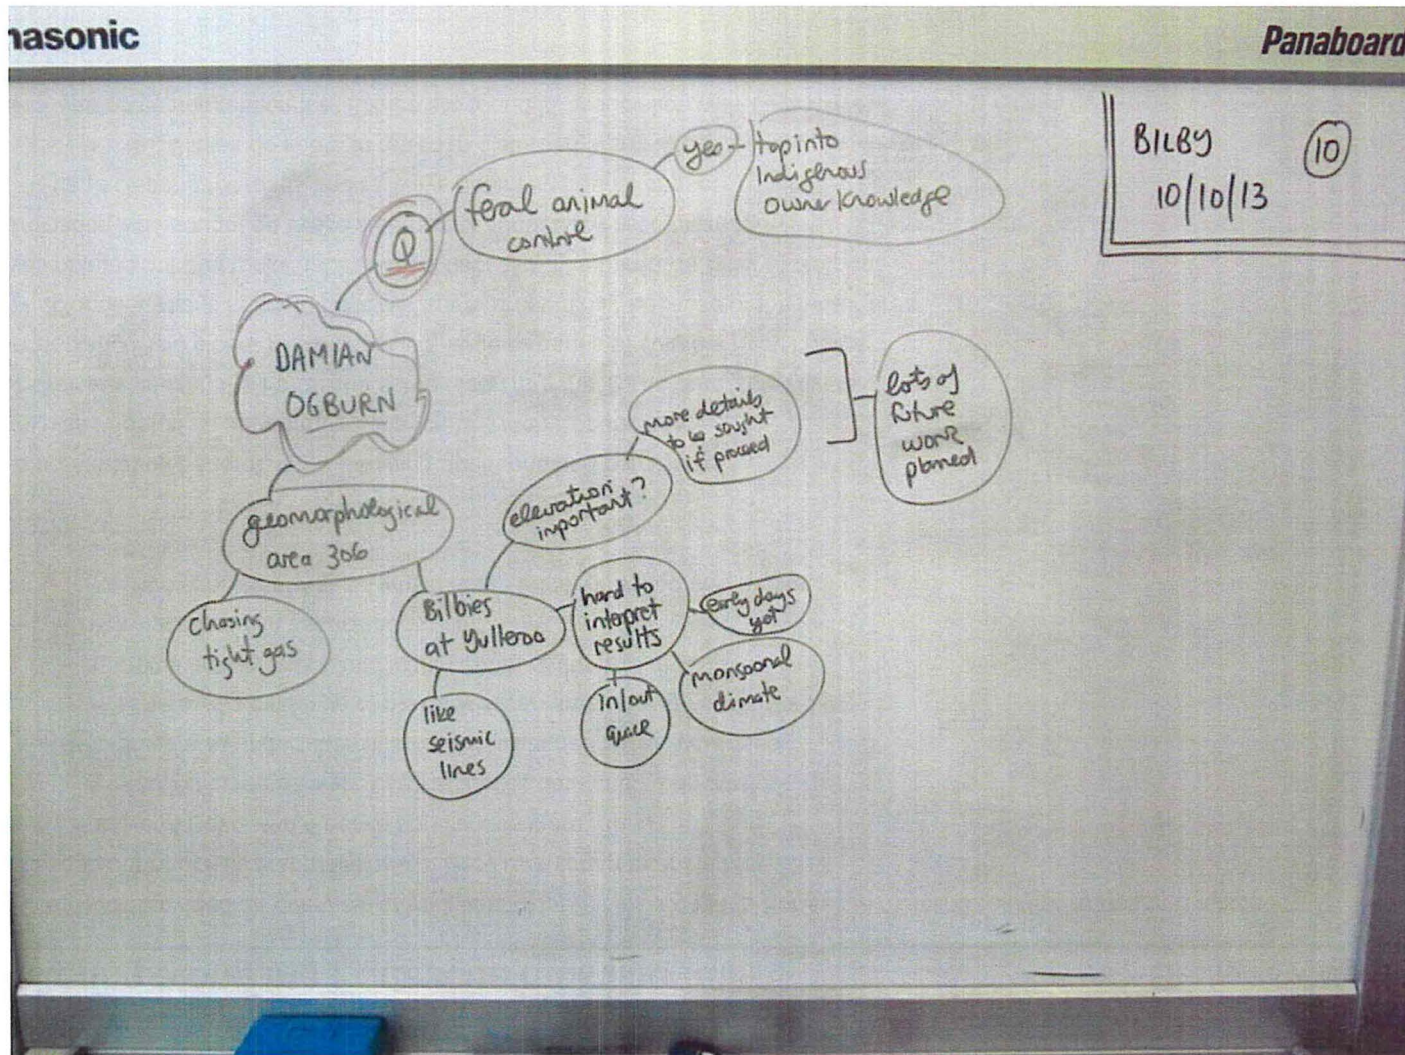 nasonic
Panaboard
BILBY
10
10/10/13
DAMIAN
OGBURN
Q
feral animal
control
yes
tap into
Indigenous
owner knowledge
geomorphological
area 306
chasing
tight gas
Bilbies
at Yulleroo
like
seismic
lines
elevation
important?
more details
to be sought
if proceed
hard to
interpret
results
early days
yet
monsoonal
climate
in/out
lots of
future
work
planned